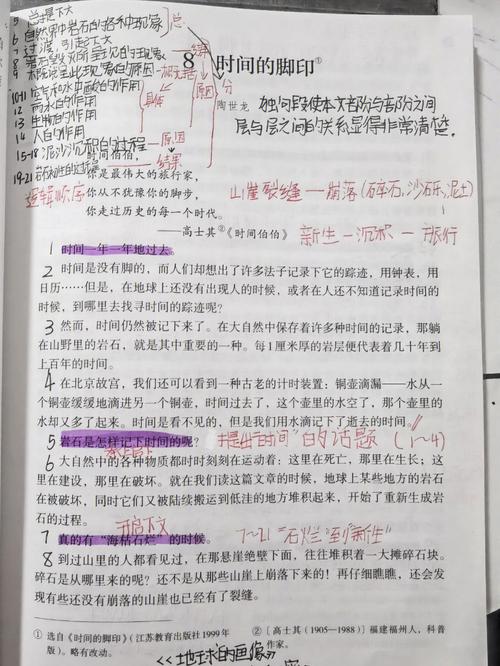 5 总是下大
6 自然界中岩石的各种现象 总
7 过渡,引起下大
8
9
10-11 空气和水中酸的作用
12 雨水的作用
13 的作用
14 人自的作用
15-18 泥沙沉积的过程 原因
19-21 结果
逻辑顺序
具体 原因 分
8 时间的脚印①
陶世龙
独句段使本文部份与部分之间
层与层之间的关系显得非常清楚.
时间伯伯,
你是最伟大的旅行家,
你从不犹豫你的脚步,
你走过历史的每一个时代。
——高士其②《时间伯伯》
山崖裂缝—崩落(碎石,沙砾,泥土)
新生—沉积—旅行
1 时间一年一年地过去。
2 时间是没有脚的,而人们却想出了许多法子记录下它的踪迹,用钟表,用
日历……但是,在地球上还没有出现人的时候,或者在人还不知道记录时间的
时候,到哪里去找寻时间的踪迹呢?
3 然而,时间仍然被记下来了。在大自然中保存着许多种时间的记录,那躺
在山野里的岩石,就是其中重要的一种。每1厘米厚的岩层便代表着几十年到
上百年的时间。
4 在北京故宫,我们还可以看到一种古老的计时装置:铜壶滴漏——水从一
个铜壶缓缓地滴进另一个铜壶,时间过去了,这个壶里的水空了,那个壶里的
水却又多了起来。时间是看不见的,但是我们用水滴记下了逝去的时间。
5 岩石是怎样记下时间的呢? 提出“时间”的话题 (1~4)
6 大自然中的各种物质都时时刻刻在运动着:这里在死亡,那里在生长;这
里在建设,那里在破坏。就在我们读这篇文章的时候,地球上某些地方的岩石
在被破坏,同时它们又被陆续搬运到低洼的地方堆积起来,开始了重新生成岩
石的过程。
开启下文
7 真的有“海枯石烂”的时候。 7~21 “石烂”到“新生”
8 到过山里的人都看见过,在那悬崖绝壁下面,往往堆积着一大摊碎石块。
碎石是从哪里来的呢?还不是从那些山崖上崩落下来的!再仔细瞧瞧,还会发
现有些还没有崩落的山崖也已经有了裂缝。
① 选自《时间的脚印》(江苏教育出版社1999年
版)。略有改动。
② [高士其(1905—1988)]福建福州人,科普
作家。
《地球的画像》